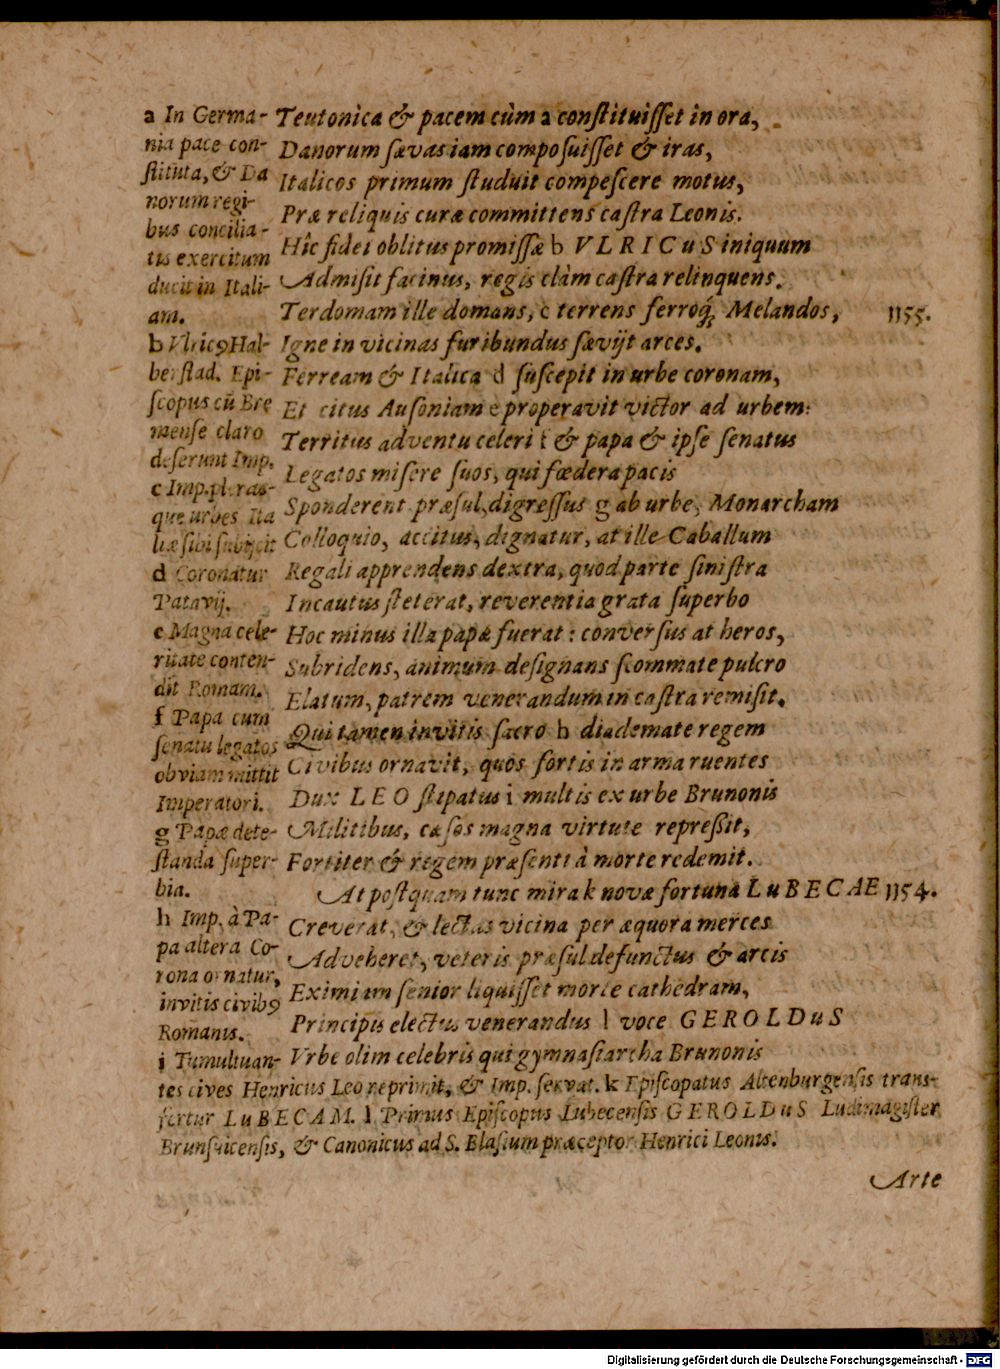 Teutonica & pacem cùm a constituisset in ora,
Danorum sævas iam composuisset & iras,
Italicos primum studuit compescere motus,
Præ reliquis curæ committens castra Leonis.
Hîc fidei oblitus promissæ b VLRICuS iniquum
Admisit facinus, regis clàm castra relinquens.
Terdomam ille domans, c terrens ferroq́; Melandos, 1155.
Igne in vicinas furibundus sævijt arces.
Ferream & Italica d suscepit in urbe coronam,
Et citus Ausoniam e properavit victor ad urbem:
Territus adventu celeri f & papa & ipse senatus
Legatos misere suos, qui fœdera pacis
Sponderent præsul, digressus g ab urbe, Monarcham
Colloquio, accitus, dignatur, at ille Caballum
Regali apprendens dextra, quod parte sinistra
Incautus steterat, reverentia grata superbo
Hoc minus illa papæ fuerat: conversus at heros,
Subridens, animum designans scommate pulcro
Elatum, patrem venerandum in castra remisit.
Qui tamen invitis sacro h diademate regem
Civibus ornavit, quos fortis in arma ruentes
Dux LEO stipatus i multis ex urbe Brunonis
Militibus, cæsos magna virtute repreßit,
Fortiter & regem præsenti à morte redemit.
At postquam tunc mira k novæ fortuna LuBECAE 1154.
Creverat, & lectas vicina per æquora merces
Adveheret, veteris præsul defunctus & arcis
Eximiam senior liquisset morte cathedram,
Principis electus venerandus l voce GEROLDuS
Vrbe olim celebris qui gymnasiarcha Brunonis
a In Germa-
nia pace con-
stituta, & Da
norum regi-
bus concilia-
tis exercitum
ducit in Itali-
am.
b Vlricꝰ Hal-
berstad. Epi-
scopus cū Bre
mense claro
deserunt Imp.
c Imp. pleras-
que urbes Ita
liæ sibi subijcit
d Coronatur
Patavij.
e Magna cele-
ritate conten-
dit Romam.
f Papa cum
senatu legatos
obviam mittit
Imperatori.
g Papæ dete-
standa super-
bia.
h Imp. à Pa-
pa altera Co-
rona ornatur,
invitis civibꝰ
Romanis.
i Tumultuan-
tes cives Henricus Leo reprimit, & Imp. servat. k Episcopatus Altenburgensis trans-
fertur LuBECAM. l Primus Episcopus Lubecensis GEROLDuS Ludimagister
Brunsvicensis, & Canonicus ad S. Blasium præceptor Henrici Leonis.
Arte
Digitalisierung gefördert durch die Deutsche Forschungsgemeinschaft - DFG